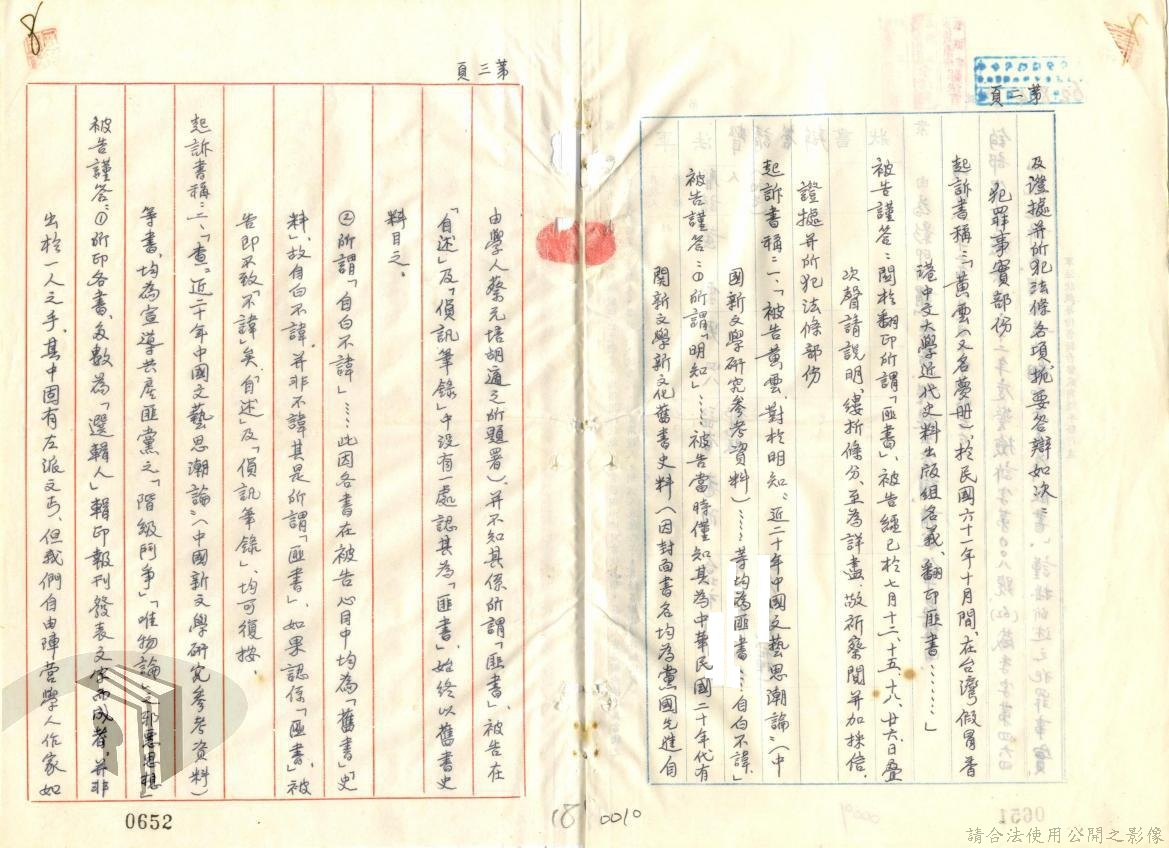 第二頁
及證據并所犯法條各項,扼要答辯如次:
犯罪事實部份
起訴書稱:「黃雲(又名夢册),於民國六十一年十月間,在台灣假冒香
港中文大學近代史料出版組名義,翻印匪書………」
被告謹答:關於翻印所謂「匪書」,被告經已於七月十二、十五、十八、廿六日,叠
次聲請說明,縷折條分,至為詳盡,敬祈察閱并加採信。
證據并所犯法條部份
起訴書稱:一、「被告黃雲,對於明知〝近二十年中國文藝思潮論〞(中
國新文學研究參考資料)……等均為匪書……自白不諱」
被告謹答:①所謂「明知」……被告當時僅知其為中華民國二十年代有
關新文學新文化舊書史料(因封面書名均為黨國先進自
第三頁
由學人蔡元培胡適之所題署),并不知其係所謂「匪書」,被告在
「自述」及「偵訊筆錄」中没有一處認其為「匪書」,始終以舊書史
料目之。
②所謂「自白不諱」……此因各書在被告心目中均為「舊書」「史
料」,故自白不諱,并非不諱其是所謂「匪書」,如果認係「匪書」,被
告即不致「不諱」矣。「自述」及「偵訊筆錄」,均可復按。
起訴書稱:二、「查〝近二十年中國文藝思潮論〞(中國新文學研究參考資料)
等書,均為宣導共產匪黨之「階級鬥爭」「唯物論」之邪惡思想」
被告謹答:①所印各書,多數為「選輯人」輯印報刊發表文字而成者,并非
出於一人之手,其中固有左派文丐,但我們自由陣營學人作家如
0652
0651
0010
請合法使用公開之影像